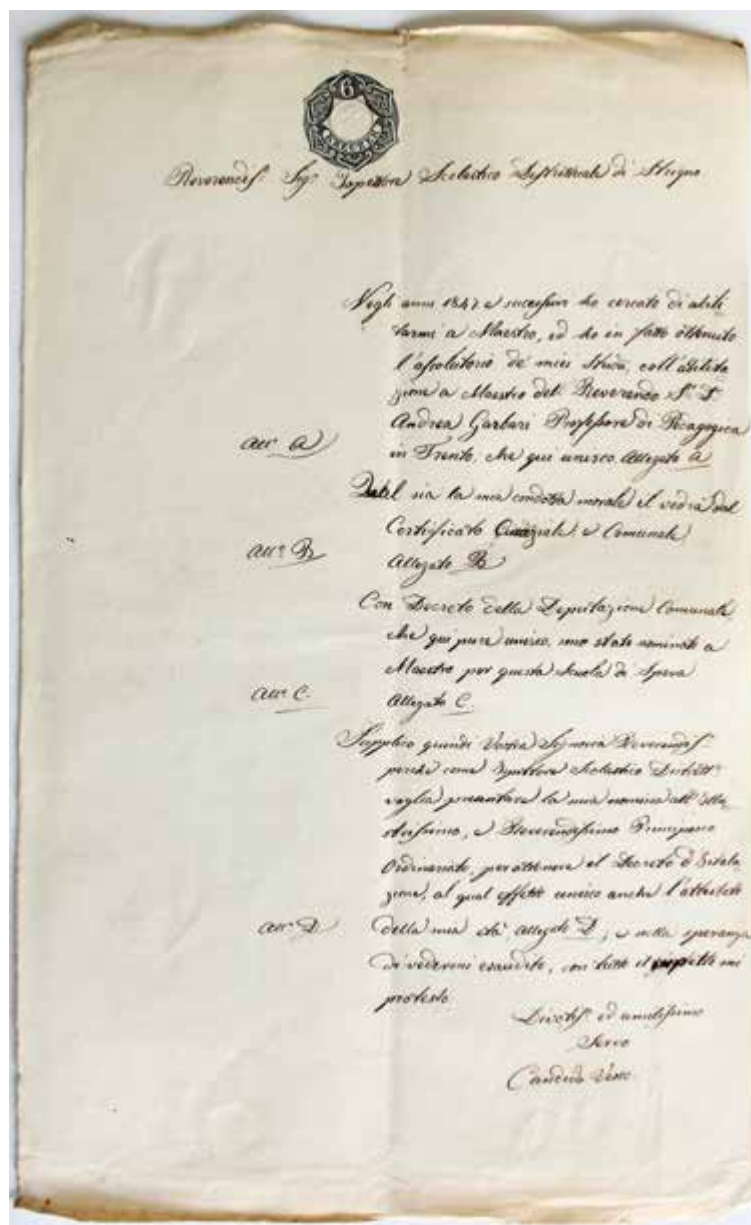 6
KREUZER
Reverendis.º Sig.r Ispettore Scolastico Distrettuale di Strigno
Negli anni 1847 e successivi ho cercato di abili-
tarmi a Maestro, ed ho in fatto ottenuto
l'assolutorio de' miei studi, coll'abilita
zione a Maestro del Reverendo S.r D.
Andrea Garbari Professore di Pedagogica
All.o A
in Trento, che qui unisco Allegato A
sia la mia condotta morale il vedrà dal
Certificato e Comunale
All.o B
Allegato B
Con Decreto della Deputazione Comunale
che qui pure unisco, sono stato nominato a
Maestro per questa Scuola di Spera
All.o C.
Allegato C.
Supplico quindi Vostra Signoria Reverendis.
perché come Ispettore Scolastico Distrett.
voglia presentare la mia nomina all' Illu
strissimo, e Reverendissimo Principesco
Ordinariato, per ottenere il Decreto d'Istala
zione, al qual effetto unisco anche l'attestato
All.o D
della mia età Allegato D, e nella speranza
di vedermi esaudito, con tutto il rispetto mi
protesto
Divotis.º ed umilissimo
Servo
Candido